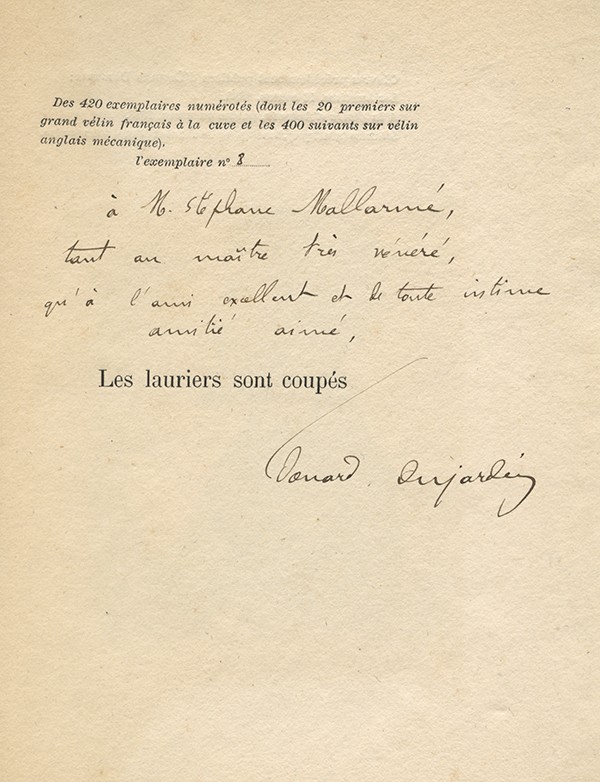 Des 420 exemplaires numérotés (dont les 20 premiers sur
grand vélin français à la cuve et les 400 suivants sur vélin
anglais mécanique).
l'exemplaire n° 8
à M. Stéphane Mallarmé,
tant au maître très vénéré,
qu'à l'ami excellent et de toute intime
amitié aimé,
Les lauriers sont coupés
Edouard Dujardin